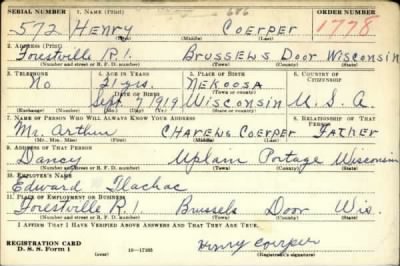 SERIAL NUMBER 1. NAME (Print) ORDER NUMBER
572 HENRY COERPER 1778
(First) (Middle) (Last)
2. ADDRESS (Print)
Forestville R1. BRUSSELS DOOR WISCONSIN
(Number and street or R. F. D. number) (Town) (County) (State)
3. TELEPHONE 4. AGE IN YEARS 5. PLACE OF BIRTH 6. COUNTRY OF CITIZENSHIP
No 21 yrs. NEKOOSA
DATE OF BIRTH
Sept. 7 1919 WISCONSIN U.S.A
(Exchange) (Number) (Mo.) (Day) (Yr.) (State or country)
7. NAME OF PERSON WHO WILL ALWAYS KNOW YOUR ADDRESS 8. RELATIONSHIP OF THAT PERSON
Mr. Arthur CHARLEWS COERPER FATHER
(Mr., Mrs., Miss) (First) (Middle) (Last)
9. ADDRESS OF THAT PERSON
Dancy Portage Wisconsin
(Number and street or R. F. D. number) (Town) (County) (State)
10. EMPLOYER'S NAME
Edward Tlachac
11. PLACE OF EMPLOYMENT OR BUSINESS
Forestville R1. Brussels Door Wis.
(Number and street or R. F. D. number) (Town) (County) (State)
I AFFIRM THAT I HAVE VERIFIED ABOVE ANSWERS AND THAT THEY ARE TRUE.
REGISTRATION CARD Henry Coerper
D. S. S. Form 1 (Registrant's signature)